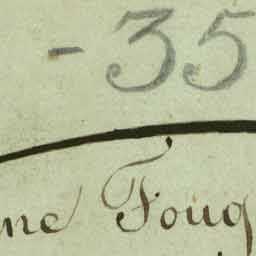 - 35
ne Foug